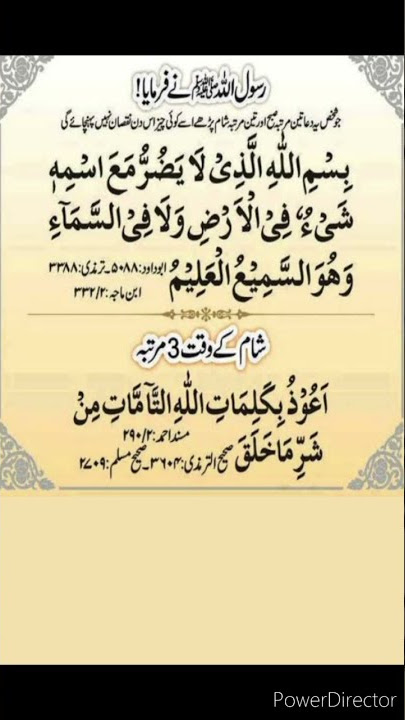 رسول اللہ ﷺ نے فرمایا!
جو شخص یہ دعا تین مرتبہ صبح اور تین مرتبہ شام پڑھے اسے کوئی چیز اس دن نقصان نہیں پہنچائے گی
بِسْمِ اللّٰهِ الَّذِیْ لَا یَضُرُّ مَعَ اسْمِهٖ
شَیْءٌ فِی الْاَرْضِ وَلَا فِی السَّمَآءِ
وَهُوَ السَّمِیْعُ الْعَلِیْمُ ابوداود: ۵۰۸۸۔ ترمذی: ۳۳۸۸
ابن ماجہ: ۳۳۲/۲
شام کے وقت 3 مرتبہ
اَعُوْذُ بِکَلِمَاتِ اللّٰهِ التَّآمَّاتِ مِنْ
شَرِّ مَا خَلَقَ مسند احمد: ۲۹۰/۲
صحیح الترمذی: ۳۶۰۴۔ صحیح مسلم: ۲۷۰۹
PowerDirector